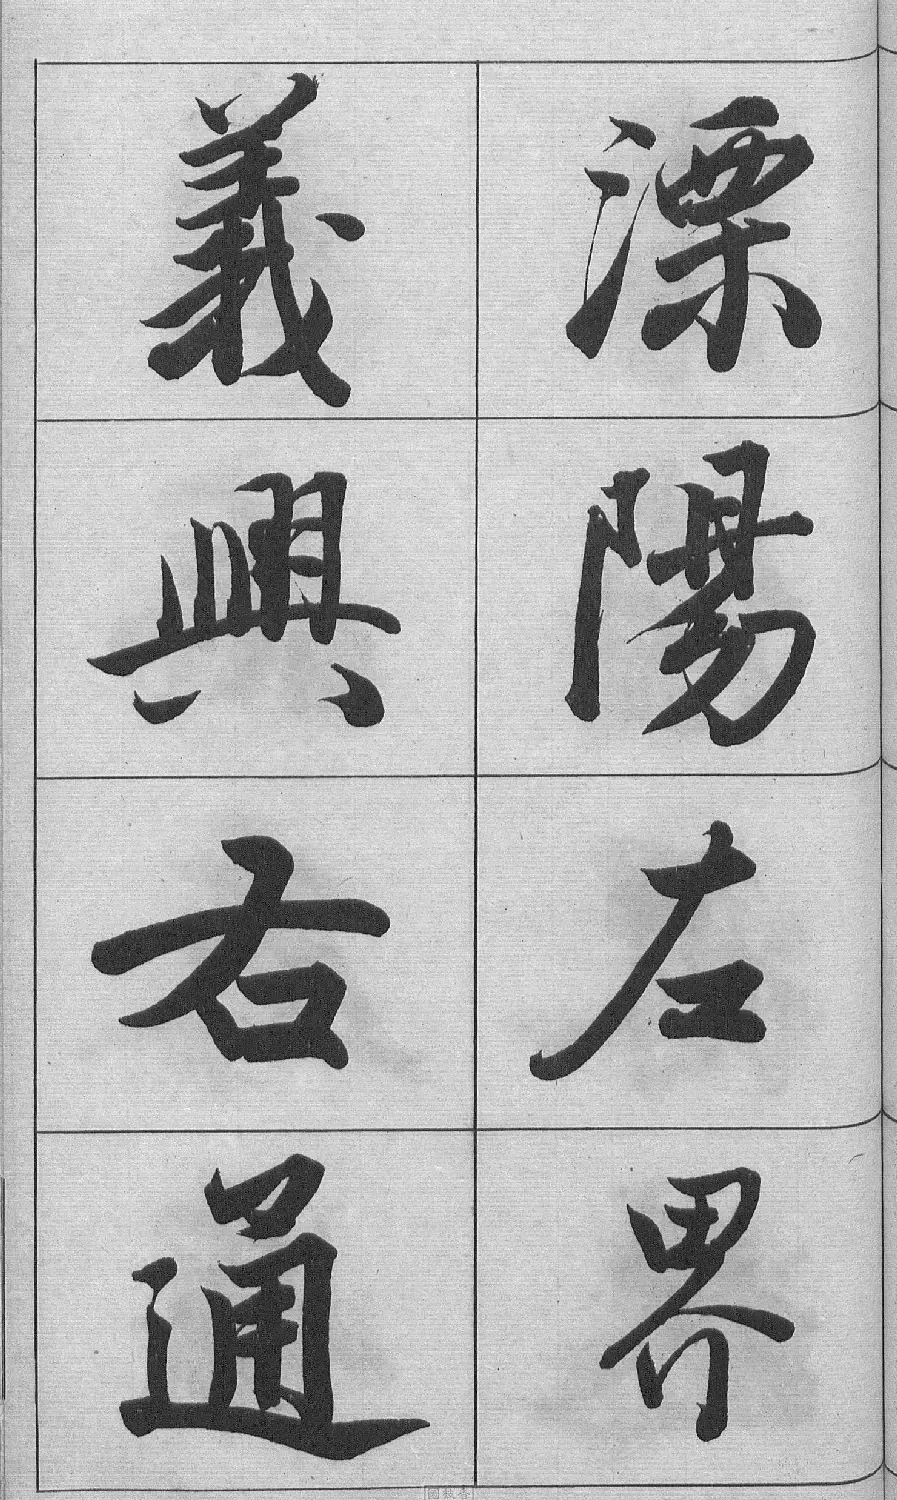 溧陽左界
義興右通